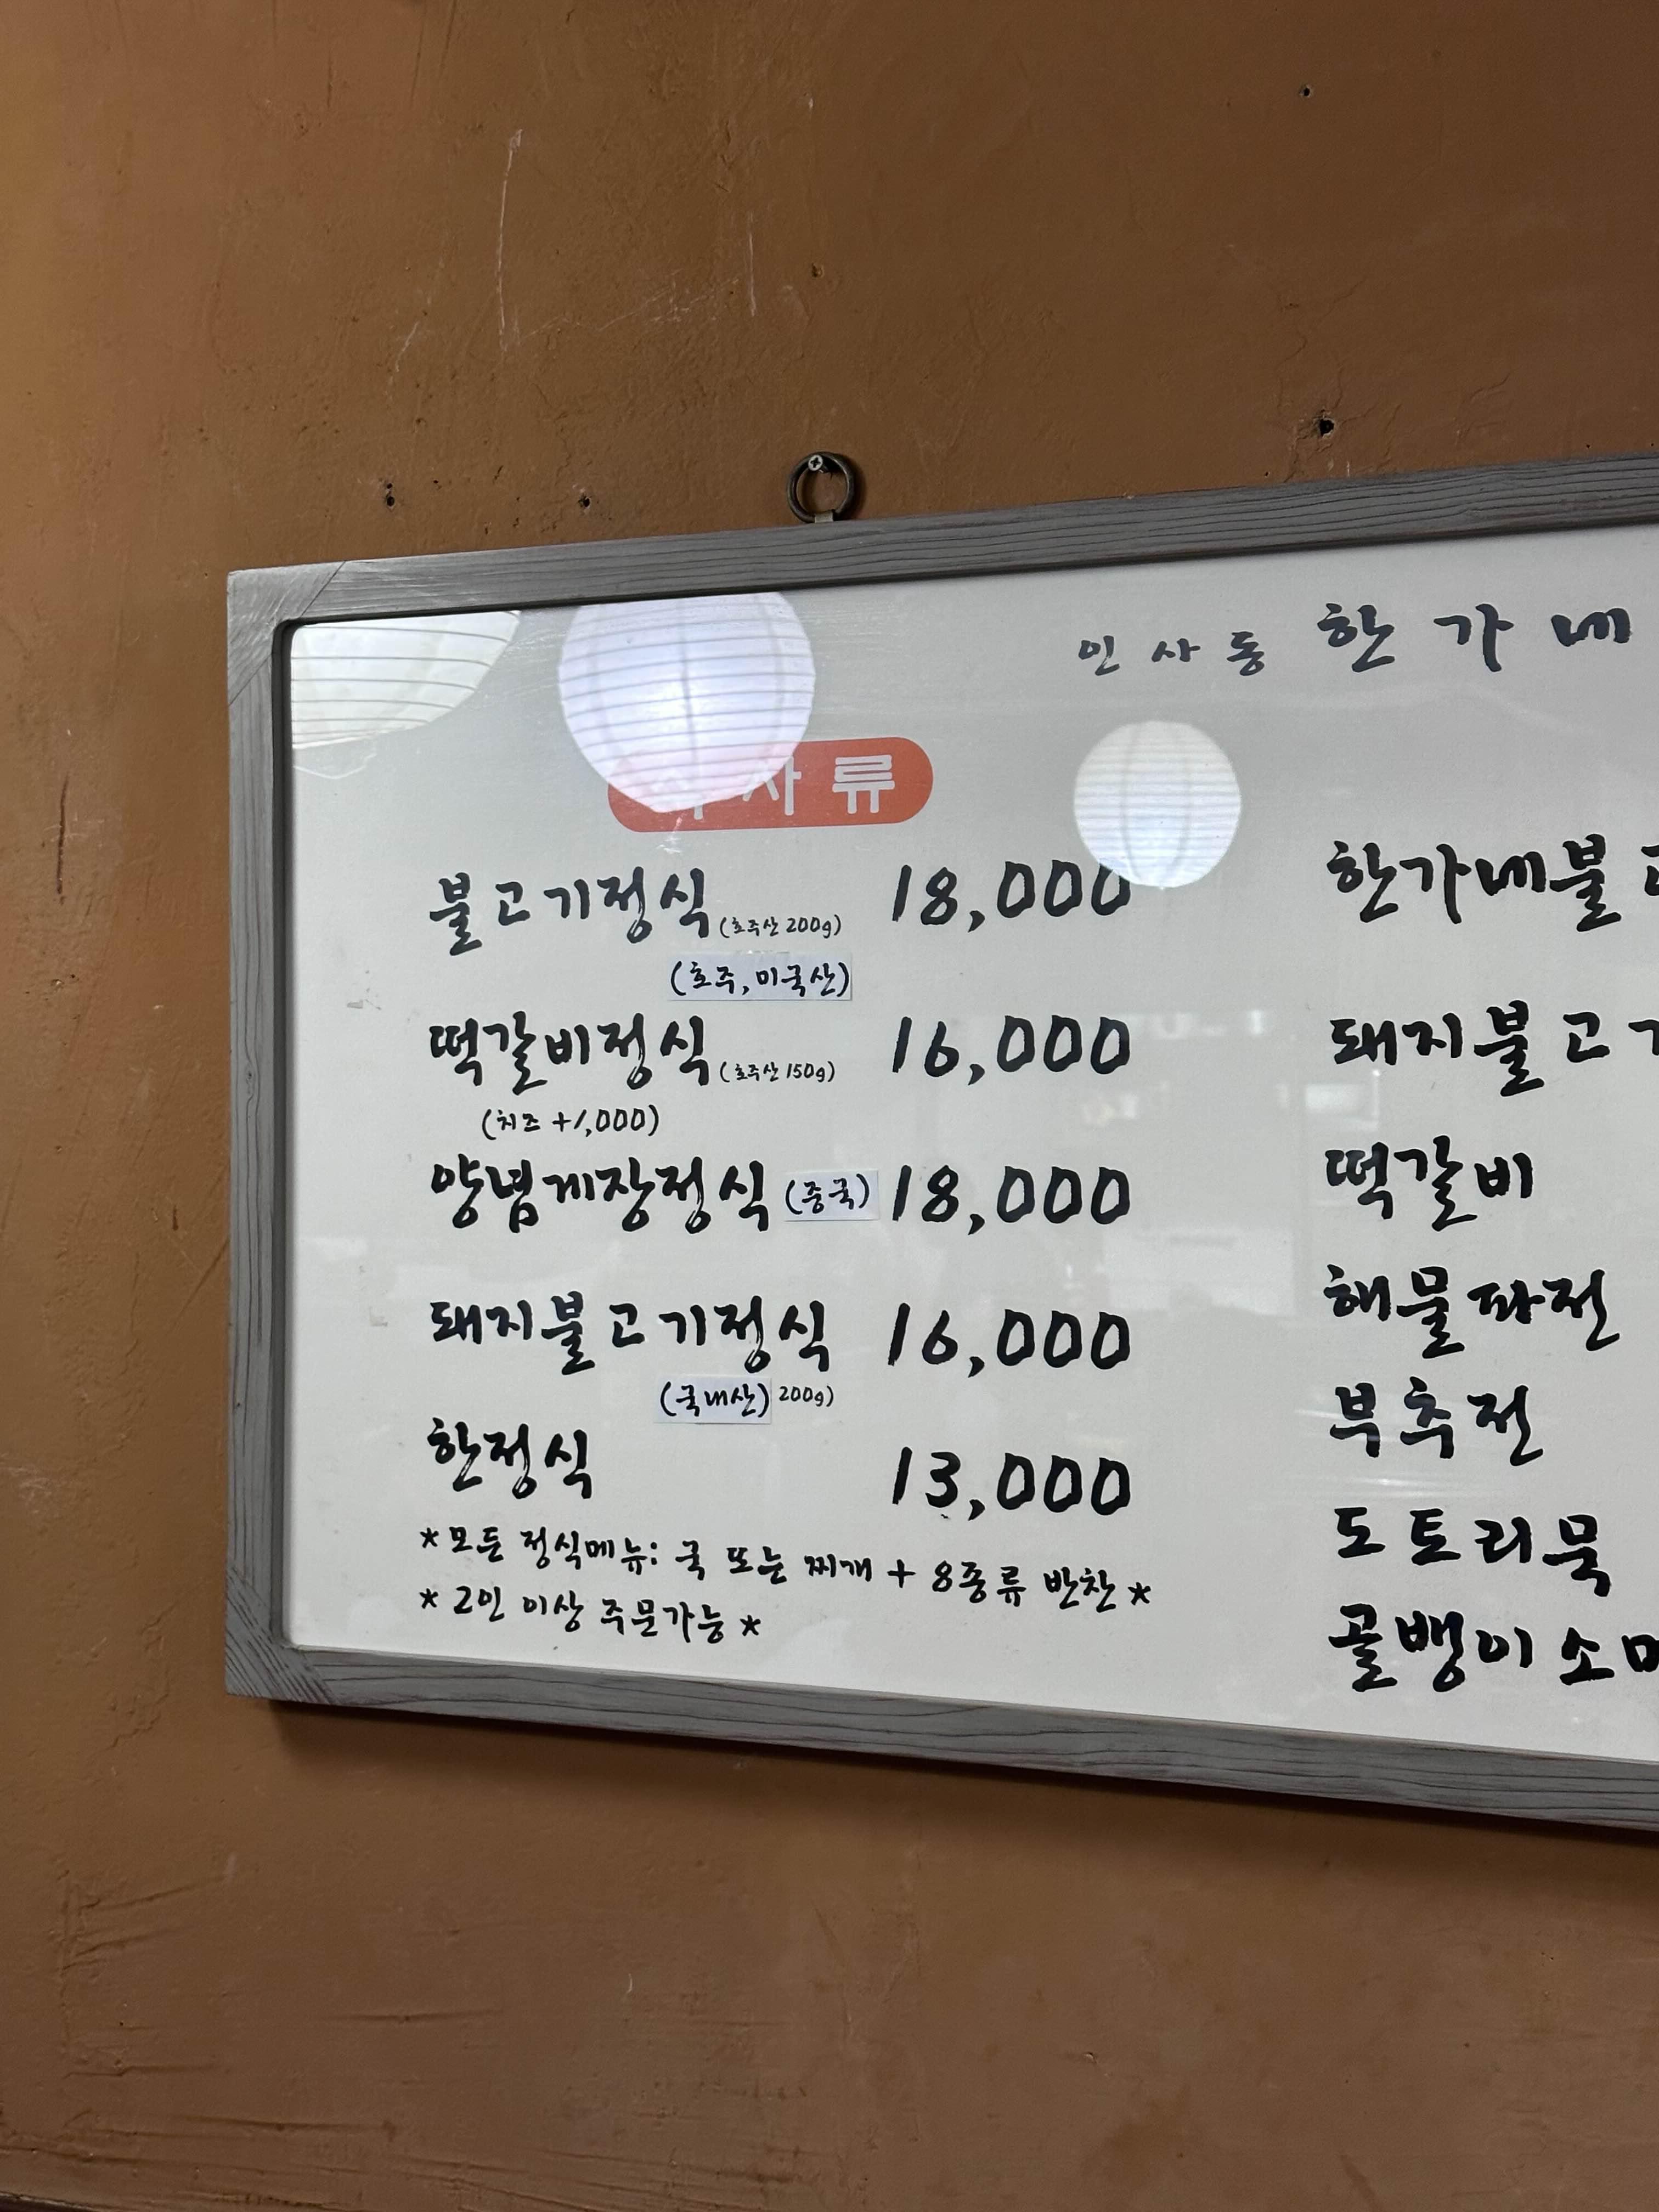 인사동 한가네
사류
불고기정식 (호주산 200g) 18,000
(호주, 미국산)
떡갈비정식 (호주산 150g) 16,000
(치즈 +1,000)
양념게장정식 (중국) 18,000
돼지불고기정식 16,000
(국내산) 200g)
한정식 13,000
*모든 정식메뉴: 국 또는 찌개 + 8종류 반찬*
*2인 이상 주문가능*
한가네불고
돼지불고기
떡갈비
해물파전
부추전
도토리묵
골뱅이소